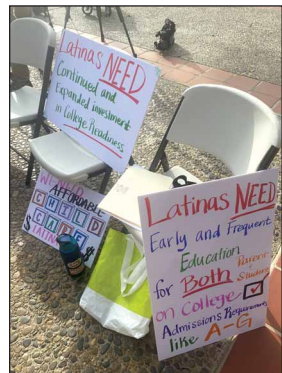 Latinas NEED
Continued and
Expanded investment
in College Readiness
AFFORDABLE
CHILD
CARE
LATINAS
Latinas NEED
Early and Frequent
Education Parent
for Both Student
on College
Admissions Requirements
like A-G